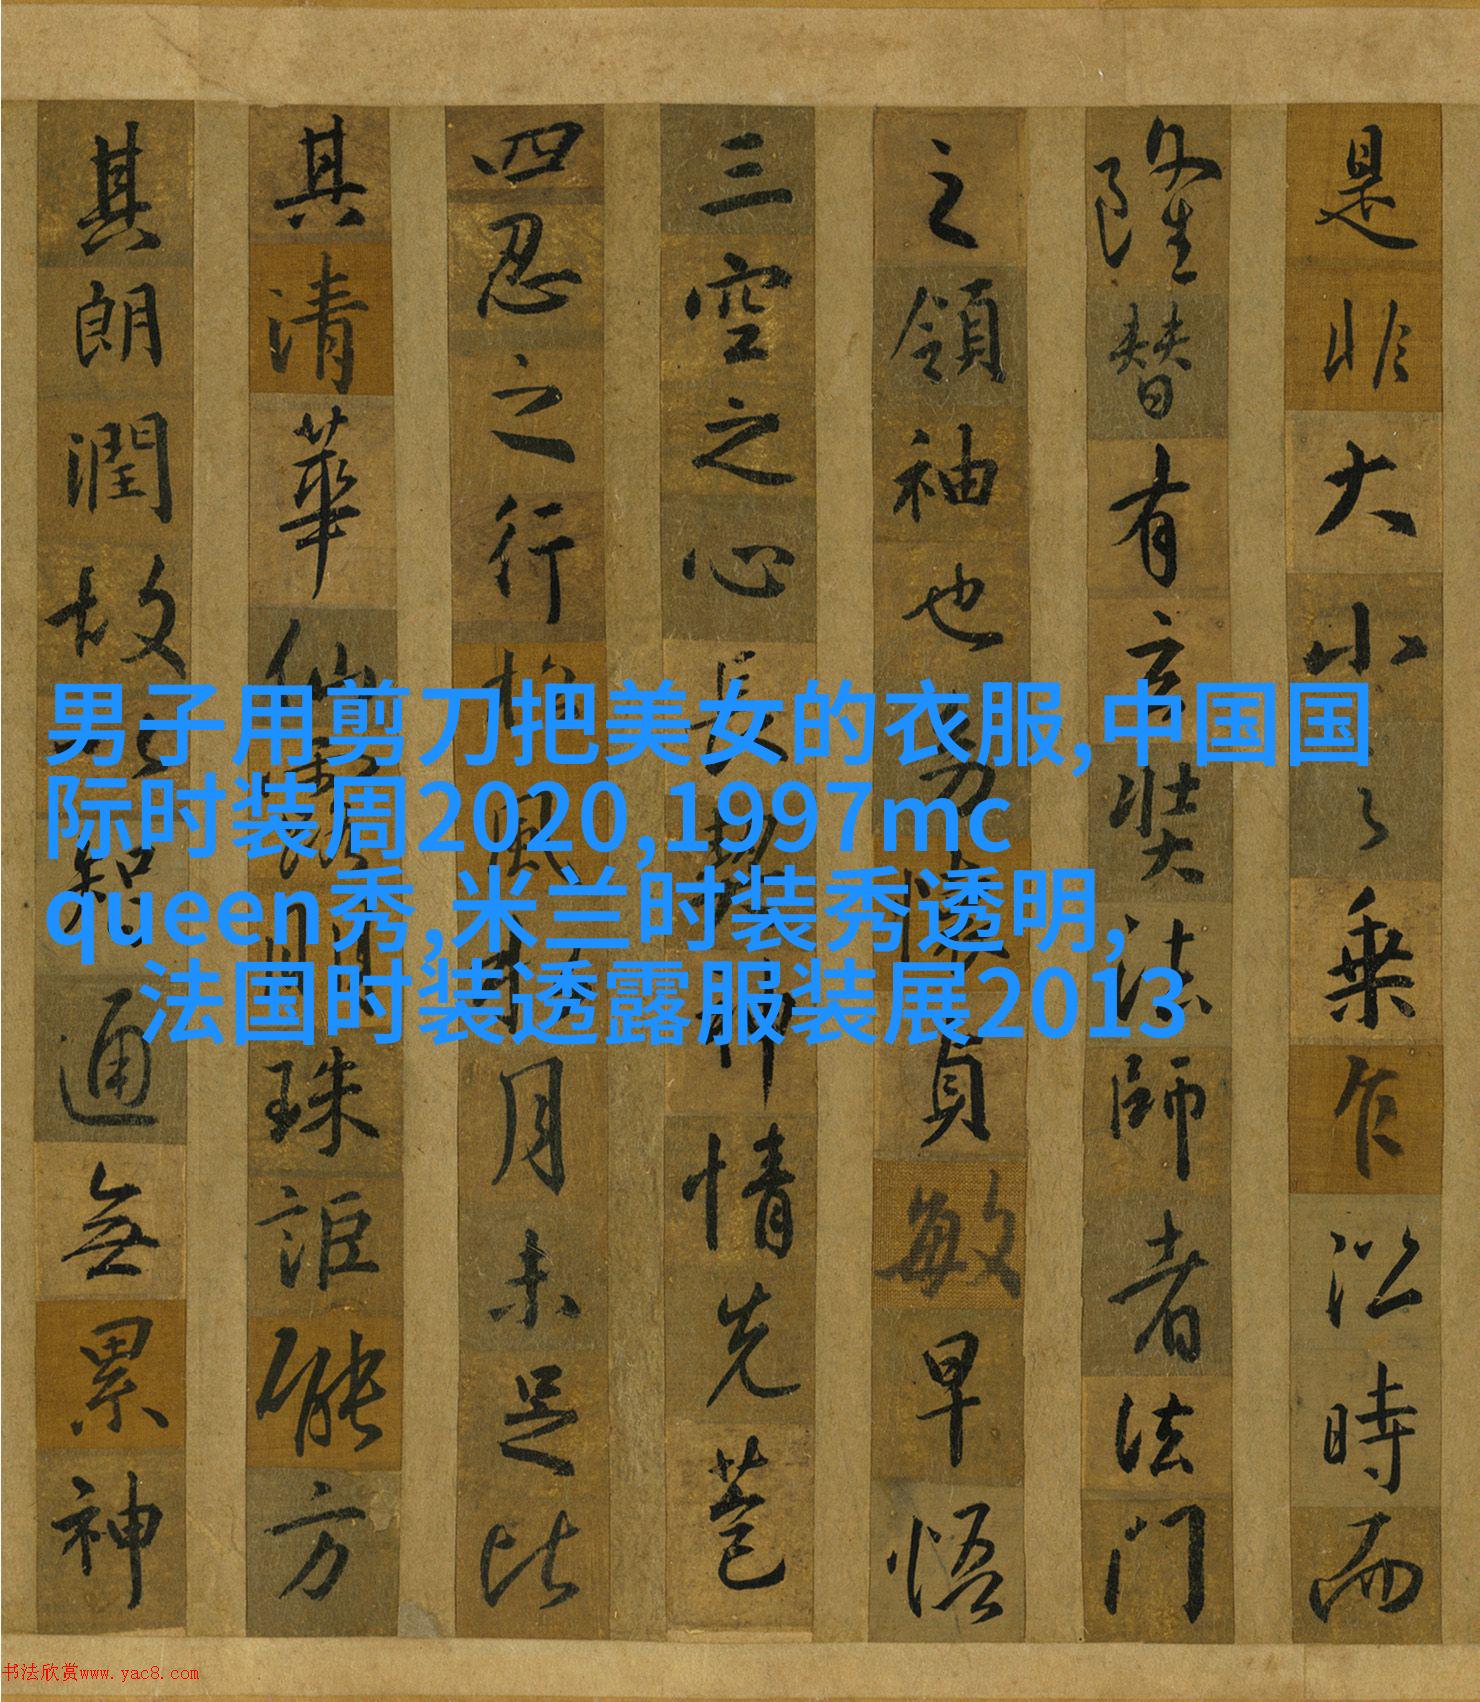 男子用剪刀把美女的衣服,中国国
际时装周2020,1997mc
queen秀,米兰时装秀透明,
法国时装透露服装展2013
是非大小之乘乍沿時而
隆替有玄奘法師者法門
之領袖也幼懷貞敏早悟
三空之心長契神情先苞
四忍之行松風水月未足比
其清華仙露明珠詎能方
其朗潤故以智通無累神
书法欣赏www.yac8.com